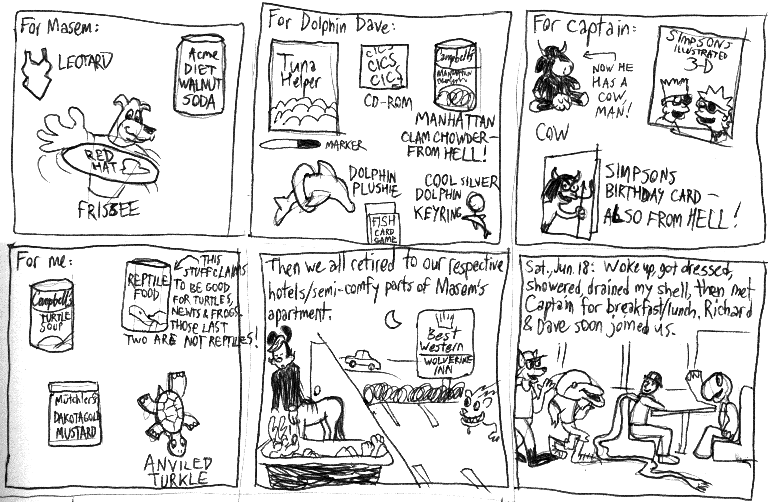 For Masem:
LEOTARD
Acme
DIET
WALNUT
SODA
RED
HAT
FRISBEE
For Dolphin Dave:
Tuna
Helper
CICS
CD-ROM
Campbell's
MANHATTAN
MANHATTAN
CLAM CHOWDER—
FROM HELL!
MARKER
DOLPHIN
PLUSHIE
FISH
CARD
GAME
COOL SILVER
DOLPHIN
KEYRING
For Captain:
NOW HE
HAS A
COW,
MAN!
COW
SIMPSONS
ILLUSTRATED
3-D
SIMPSONS
BIRTHDAY CARD—
ALSO FROM HELL!
For me:
Campbell's
TURTLE
SOUP
REPTILE
FOOD
THIS
STUFF CLAIMS
TO BE GOOD
FOR TURTLES,
NEWTS & FROGS.
THOSE LAST
TWO ARE NOT REPTILES!
Mütchler's
DAKOTA GOLD
MUSTARD
ANVILED
TURKLE
Then we all retired to our respective
hotels/semi-comfy parts of Masem's
apartment.
Best
Western
WOLVERINE
INN
Sat., Jun. 18: Woke up, got dressed,
showered, drained my shell, then met
Captain for breakfast/lunch. Richard
& Dave soon joined us.